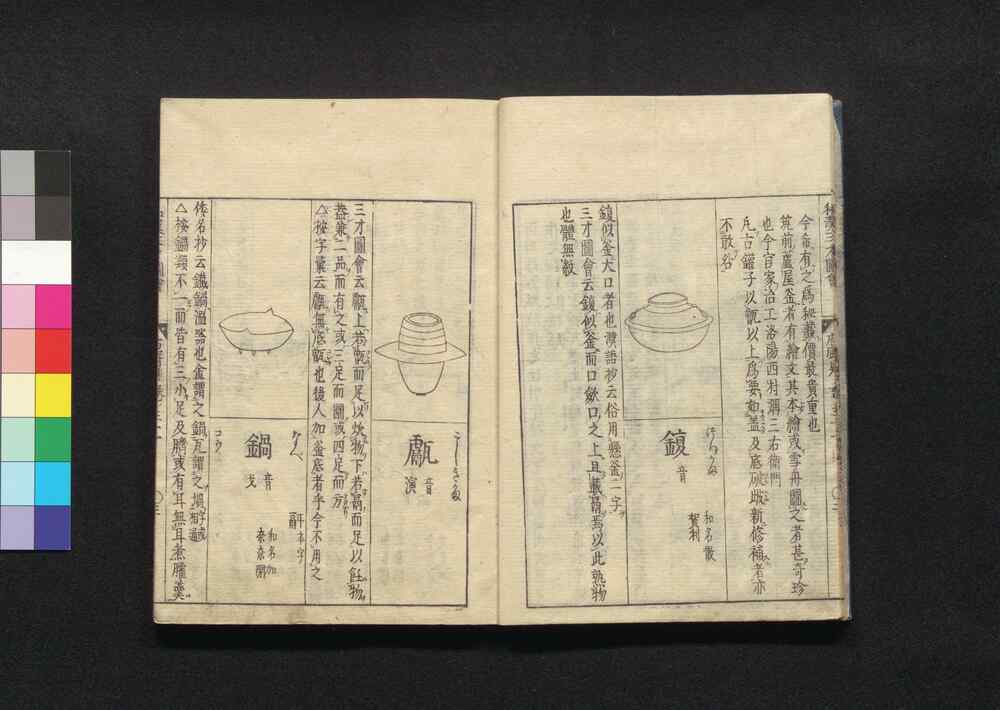 今希有之爲秘藏價最貴重也
筑前蘆屋釜者有繪文其本繪或雪舟圖之者甚奇珍
也今百家冶工洛陽西村彌三右衞門
凡古鑵子以甑以上爲要如蓋及底破缺新修補者亦
不敢名
鍑
音
和名散
賀利
鍑似釜大口者也漢語抄云俗用懸釜二字
三才圖會云鍑似釜而口歛口之上且載鬲焉以此熟物
也體無敵
甗
音
演
三才圖會云甗上若甑而足以炊物下若鬲而足以飪物
蓋兼二品而有之或三足而圜或四足而方
△按字彙云甗無底甑也後人加釜底者乎今不用之
鍋
なべ
音
戈
和名加
奈奈閉
倭名抄云鐵鍋溫器也金謂之鍋瓦謂之
△按鍋類不一而皆有三小足及臍或有耳無耳煮臛羹